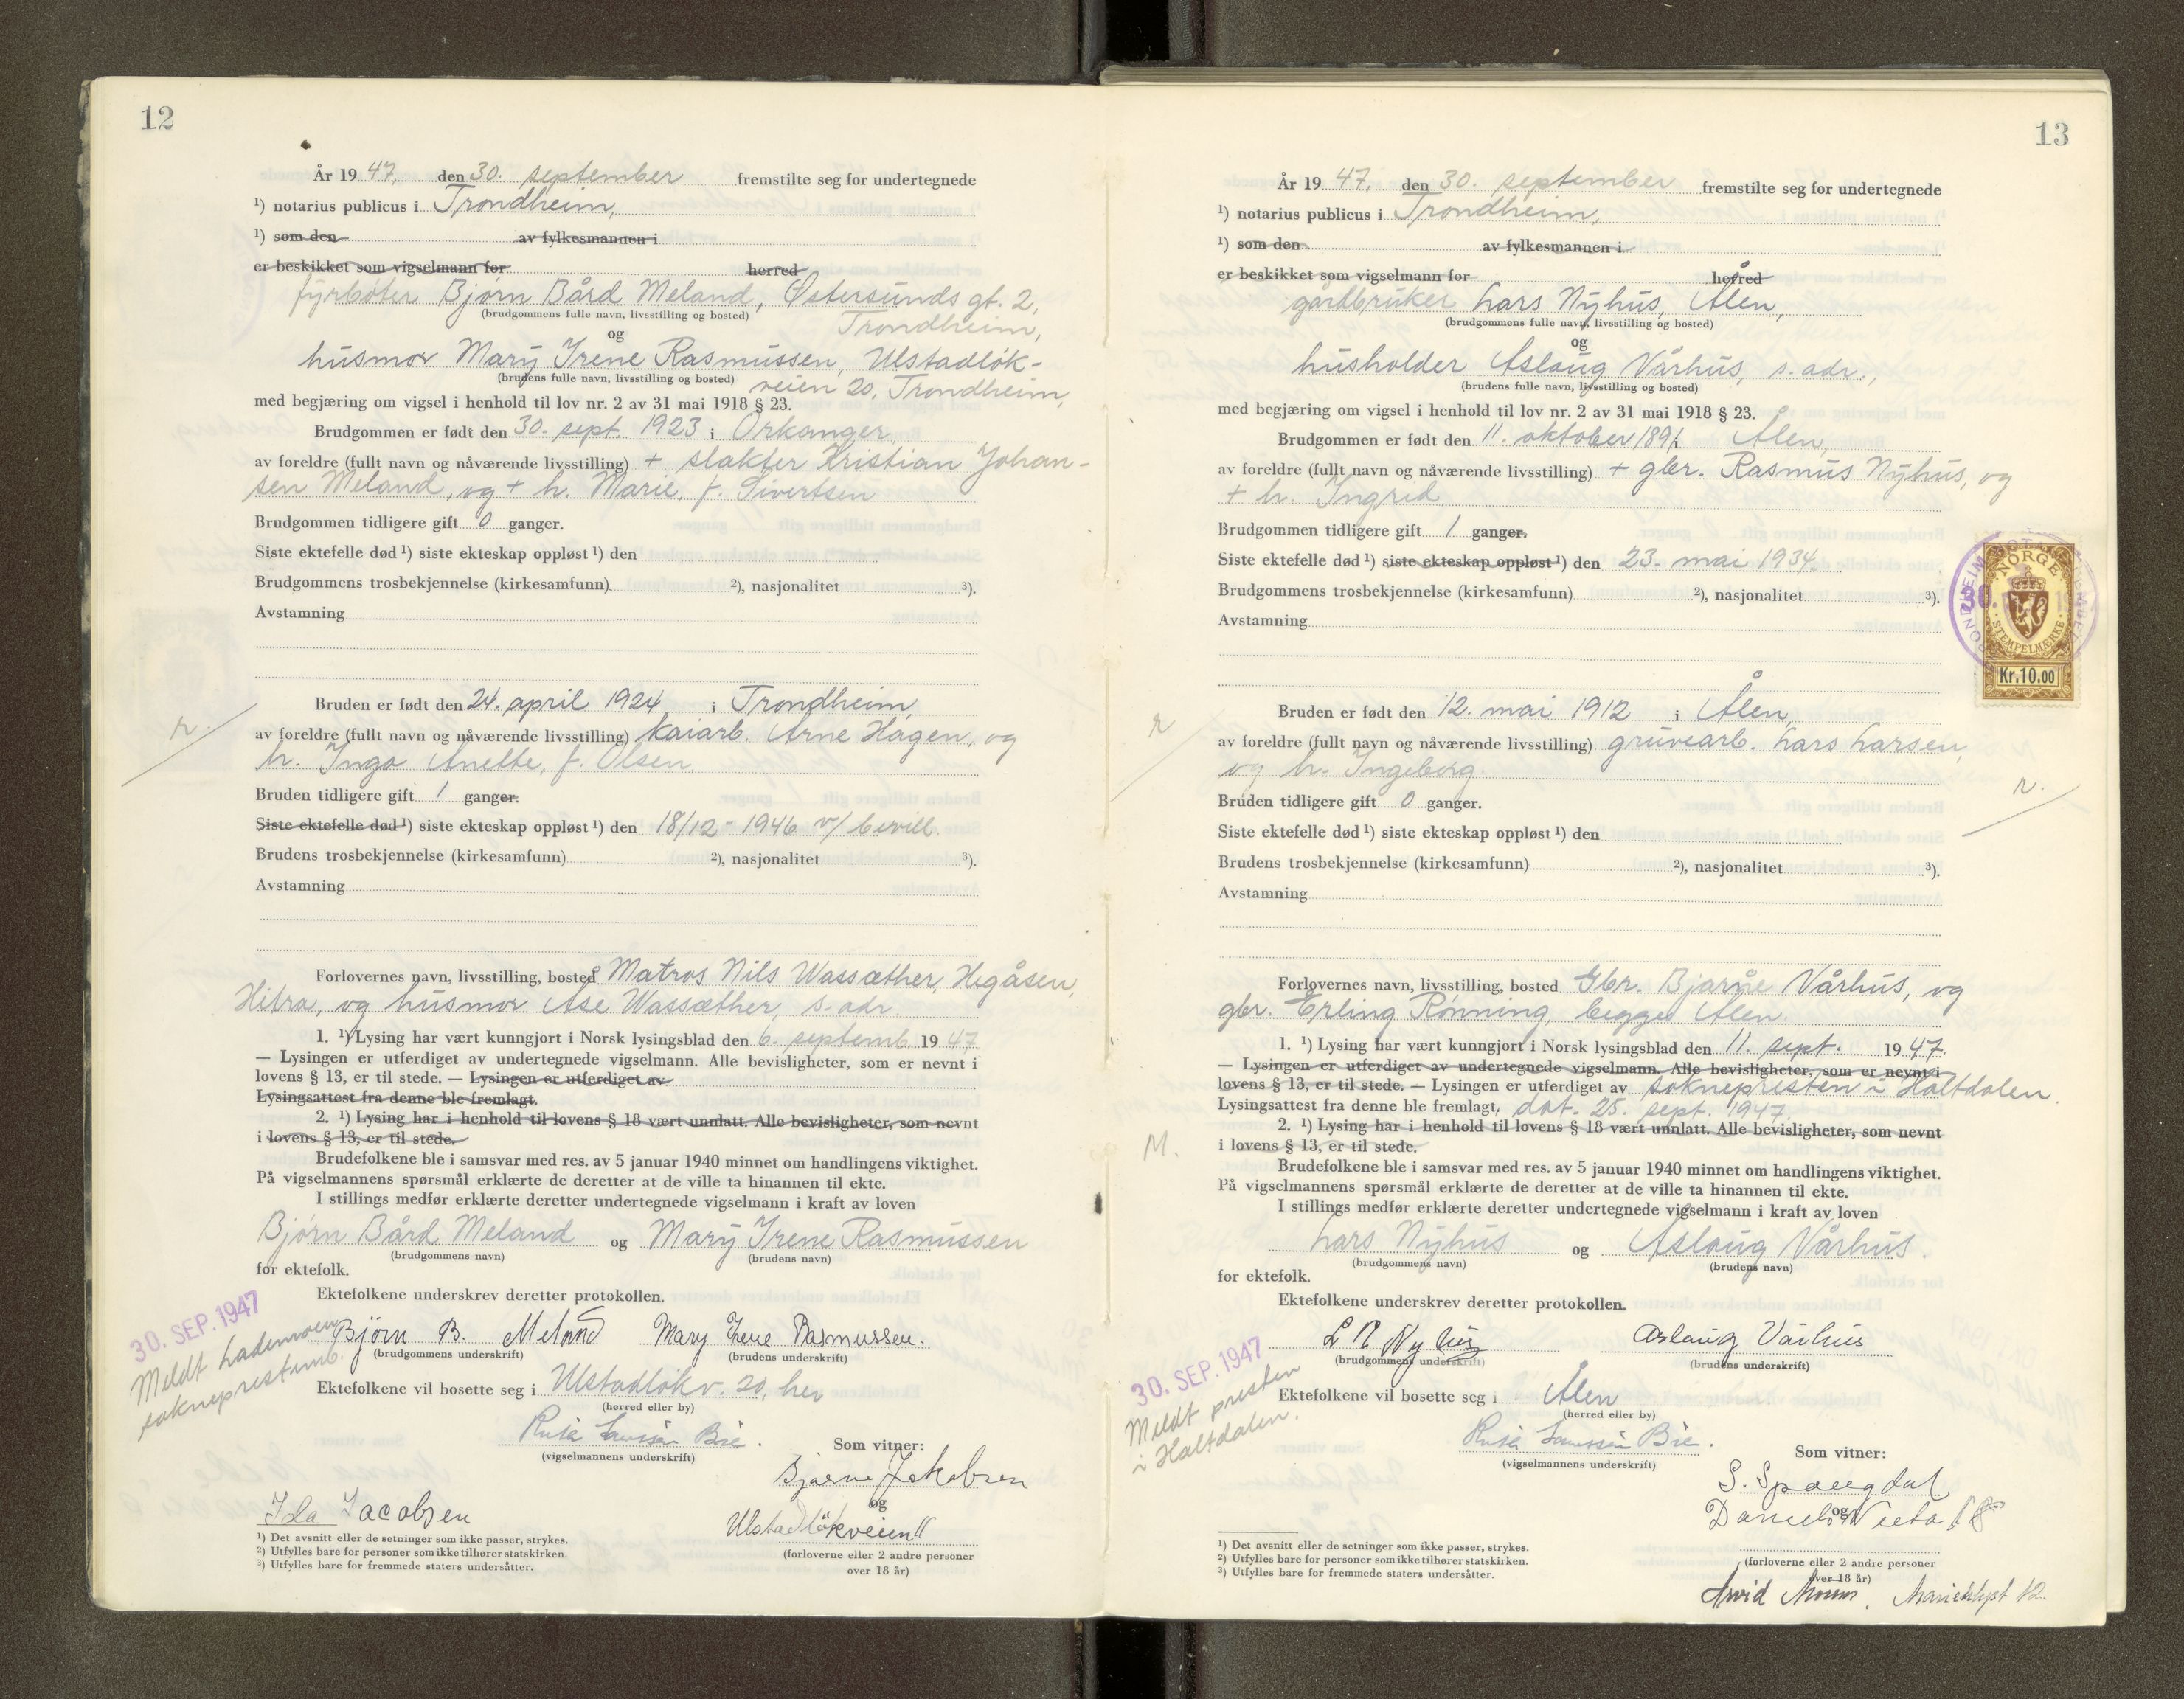 12
År 19 47, den 30. september fremstilte seg for undertegnede
¹) notarius publicus i Trondheim,
¹) som den av fylkesmannen i
er beskikket som vigselmann for herred
fyrbøter Bjørn Bård Meland, Østersunds gt. 2,
(brudgommens fulle navn, livsstilling og bosted) Trondheim,
og
husmor Mary Irene Rasmussen, Ulstadløk-
(brudens fulle navn, livsstilling og bosted) veien 20, Trondheim,
med begjæring om vigsel i henhold til lov nr. 2 av 31 mai 1918 § 23.
Brudgommen er født den 30. sept. 1923 i Orkanger
av foreldre (fullt navn og nåværende livsstilling) + slakter Kristian Johan-
sen Meland, og + h. Marie, f. Sivertsen
Brudgommen tidligere gift 0 ganger.
Siste ektefelle død ¹) siste ekteskap oppløst ¹) den
Brudgommens trosbekjennelse (kirkesamfunn) ²), nasjonalitet ³).
Avstamning
Bruden er født den 24. april 1924 i Trondheim,
r.
av foreldre (fullt navn og nåværende livsstilling) kaiarb. Arne Hagen, og
h. Inga Anette, f. Olsen.
Bruden tidligere gift 1 ganger.
Siste ektefelle død ¹) siste ekteskap oppløst ¹) den 18/12 - 1946 v/ bevill.
Brudens trosbekjennelse (kirkesamfunn) ²), nasjonalitet ³).
Avstamning
Forlovernes navn, livsstilling, bosted Matros Nils Wassæther, Hegåsen,
Hitra, og husmor Åse Wassæther, s. adr.
1. ¹) Lysing har vært kunngjort i Norsk lysingsblad den 6. septemb. 19 47
— Lysingen er utferdiget av undertegnede vigselmann. Alle bevisligheter, som er nevnt i
lovens § 13, er til stede. — Lysingen er utferdiget av
Lysingsattest fra denne ble fremlagt.
2. ¹) Lysing har i henhold til lovens § 18 vært unnlatt. Alle bevisligheter, som nevnt
i lovens § 13, er til stede.
Brudefolkene ble i samsvar med res. av 5 januar 1940 minnet om handlingens viktighet.
På vigselmannens spørsmål erklærte de deretter at de ville ta hinannen til ekte.
I stillings medfør erklærte deretter undertegnede vigselmann i kraft av loven
Bjørn Bård Meland og Mary Irene Rasmussen
(brudgommens navn) (brudens navn)
for ektefolk.
Ektefolkene underskrev deretter protokollen.
30. SEP. 1947
Meldt Lademoen
sokneprestemb.
Bjørn B. Meland Mary Irene Rasmussen.
(brudgommens underskrift) (brudens underskrift)
Ektefolkene vil bosette seg i Ulstadløkv. 20, her
(herred eller by)
(vigselmannens underskrift)
Som vitner:
Bjarne Jakobsen
og
Ida Jacobsen
Ulstadløkveien 11
(forloverne eller 2 andre personer
over 18 år)
¹) Det avsnitt eller de setninger som ikke passer, strykes.
²) Utfylles bare for personer som ikke tilhører statskirken.
³) Utfylles bare for fremmede staters undersåtter.
13
År 19 47, den 30. september fremstilte seg for undertegnede
¹) notarius publicus i Trondheim,
¹) som den av fylkesmannen i
er beskikket som vigselmann for herred
gårdbruker Lars Nyhus, Ålen,
(brudgommens fulle navn, livsstilling og bosted)
og
husholder Aslaug Vårhus, s. adr.,
(brudens fulle navn, livsstilling og bosted)
med begjæring om vigsel i henhold til lov nr. 2 av 31 mai 1918 § 23.
Brudgommen er født den 11. oktober 1891 i Ålen,
av foreldre (fullt navn og nåværende livsstilling) + gbr. Rasmus Nyhus, og
+ h. Ingrid
Brudgommen tidligere gift 1 ganger.
Siste ektefelle død ¹) siste ekteskap oppløst ¹) den 23. mai 1934.
Brudgommens trosbekjennelse (kirkesamfunn) ²), nasjonalitet ³).
Avstamning
NORGE
STEMPELMERKE
Kr.10.00
30.
Bruden er født den 12. mai 1912 i Ålen,
r
av foreldre (fullt navn og nåværende livsstilling) gruvearb. Lars Larsen,
og h. Ingeborg.
r.
Bruden tidligere gift 0 ganger.
Siste ektefelle død ¹) siste ekteskap oppløst ¹) den
Brudens trosbekjennelse (kirkesamfunn) ²), nasjonalitet ³).
Avstamning
Forlovernes navn, livsstilling, bosted Gbr. Bjarne Vårhus, og
gbr. Erling Rønning, begge Ålen.
1. ¹) Lysing har vært kunngjort i Norsk lysingsblad den 11. sept. 19 47.
— Lysingen er utferdiget av undertegnede vigselmann. Alle bevisligheter, som er nevnt i
lovens § 13, er til stede. — Lysingen er utferdiget av soknepresten i Haltdalen.
Lysingsattest fra denne ble fremlagt, dat. 25. sept. 1947.
2. ¹) Lysing har i henhold til lovens § 18 vært unnlatt. Alle bevisligheter, som nevnt
M.
i lovens § 13, er til stede.
Brudefolkene ble i samsvar med res. av 5 januar 1940 minnet om handlingens viktighet.
På vigselmannens spørsmål erklærte de deretter at de ville ta hinannen til ekte.
I stillings medfør erklærte deretter undertegnede vigselmann i kraft av loven
Lars Nyhus og Aslaug Vårhus.
(brudgommens navn) (brudens navn)
for ektefolk.
Ektefolkene underskrev deretter protokollen.
30. SEP. 1947
Meldt presten
i Haltdalen.
L R Nyhus Aslaug Vårhus
(brudgommens underskrift) (brudens underskrift)
Ektefolkene vil bosette seg i Ålen
(herred eller by)
(vigselmannens underskrift)
Som vitner:
og
(forloverne eller 2 andre personer
over 18 år)
Arvid
¹) Det avsnitt eller de setninger som ikke passer, strykes.
²) Utfylles bare for personer som ikke tilhører statskirken.
³) Utfylles bare for fremmede staters undersåtter.